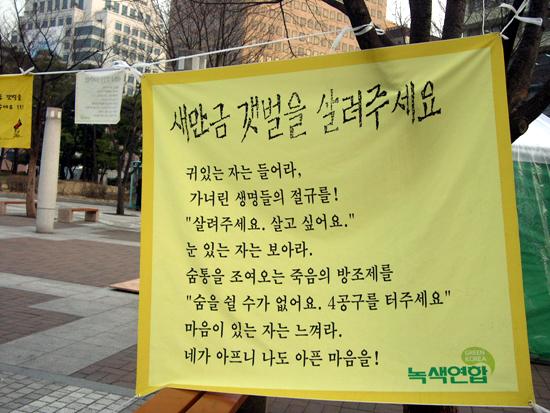 새만금 갯벌을 살려주세요
귀있는 자는 들어라,
가녀린 생명들의 절규를!
"살려주세요. 살고 싶어요."
눈 있는 자는 보아라.
숨통을 조여오는 죽음의 방조제를
"숨을 쉴 수가 없어요. 4공구를 터주세요"
마음이 있는 자는 느껴라.
네가 아프니 나도 아픈 마음을!
GREEN
KOREA
녹색연합